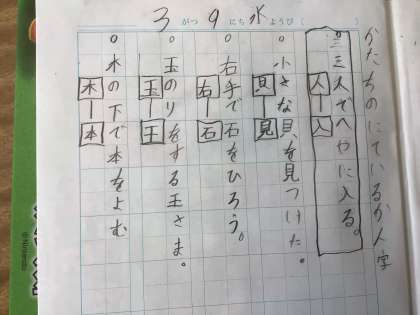 3がつ9にち水ようび（　）
かたちのにているかん字
へやに入る。
人—入
。小さな貝を見つけた。
貝—見
。右手で石をひろう。
右—石
。玉のりをする王さま。
玉—王
。木の下で本をよむ
木—本
©Nintendo